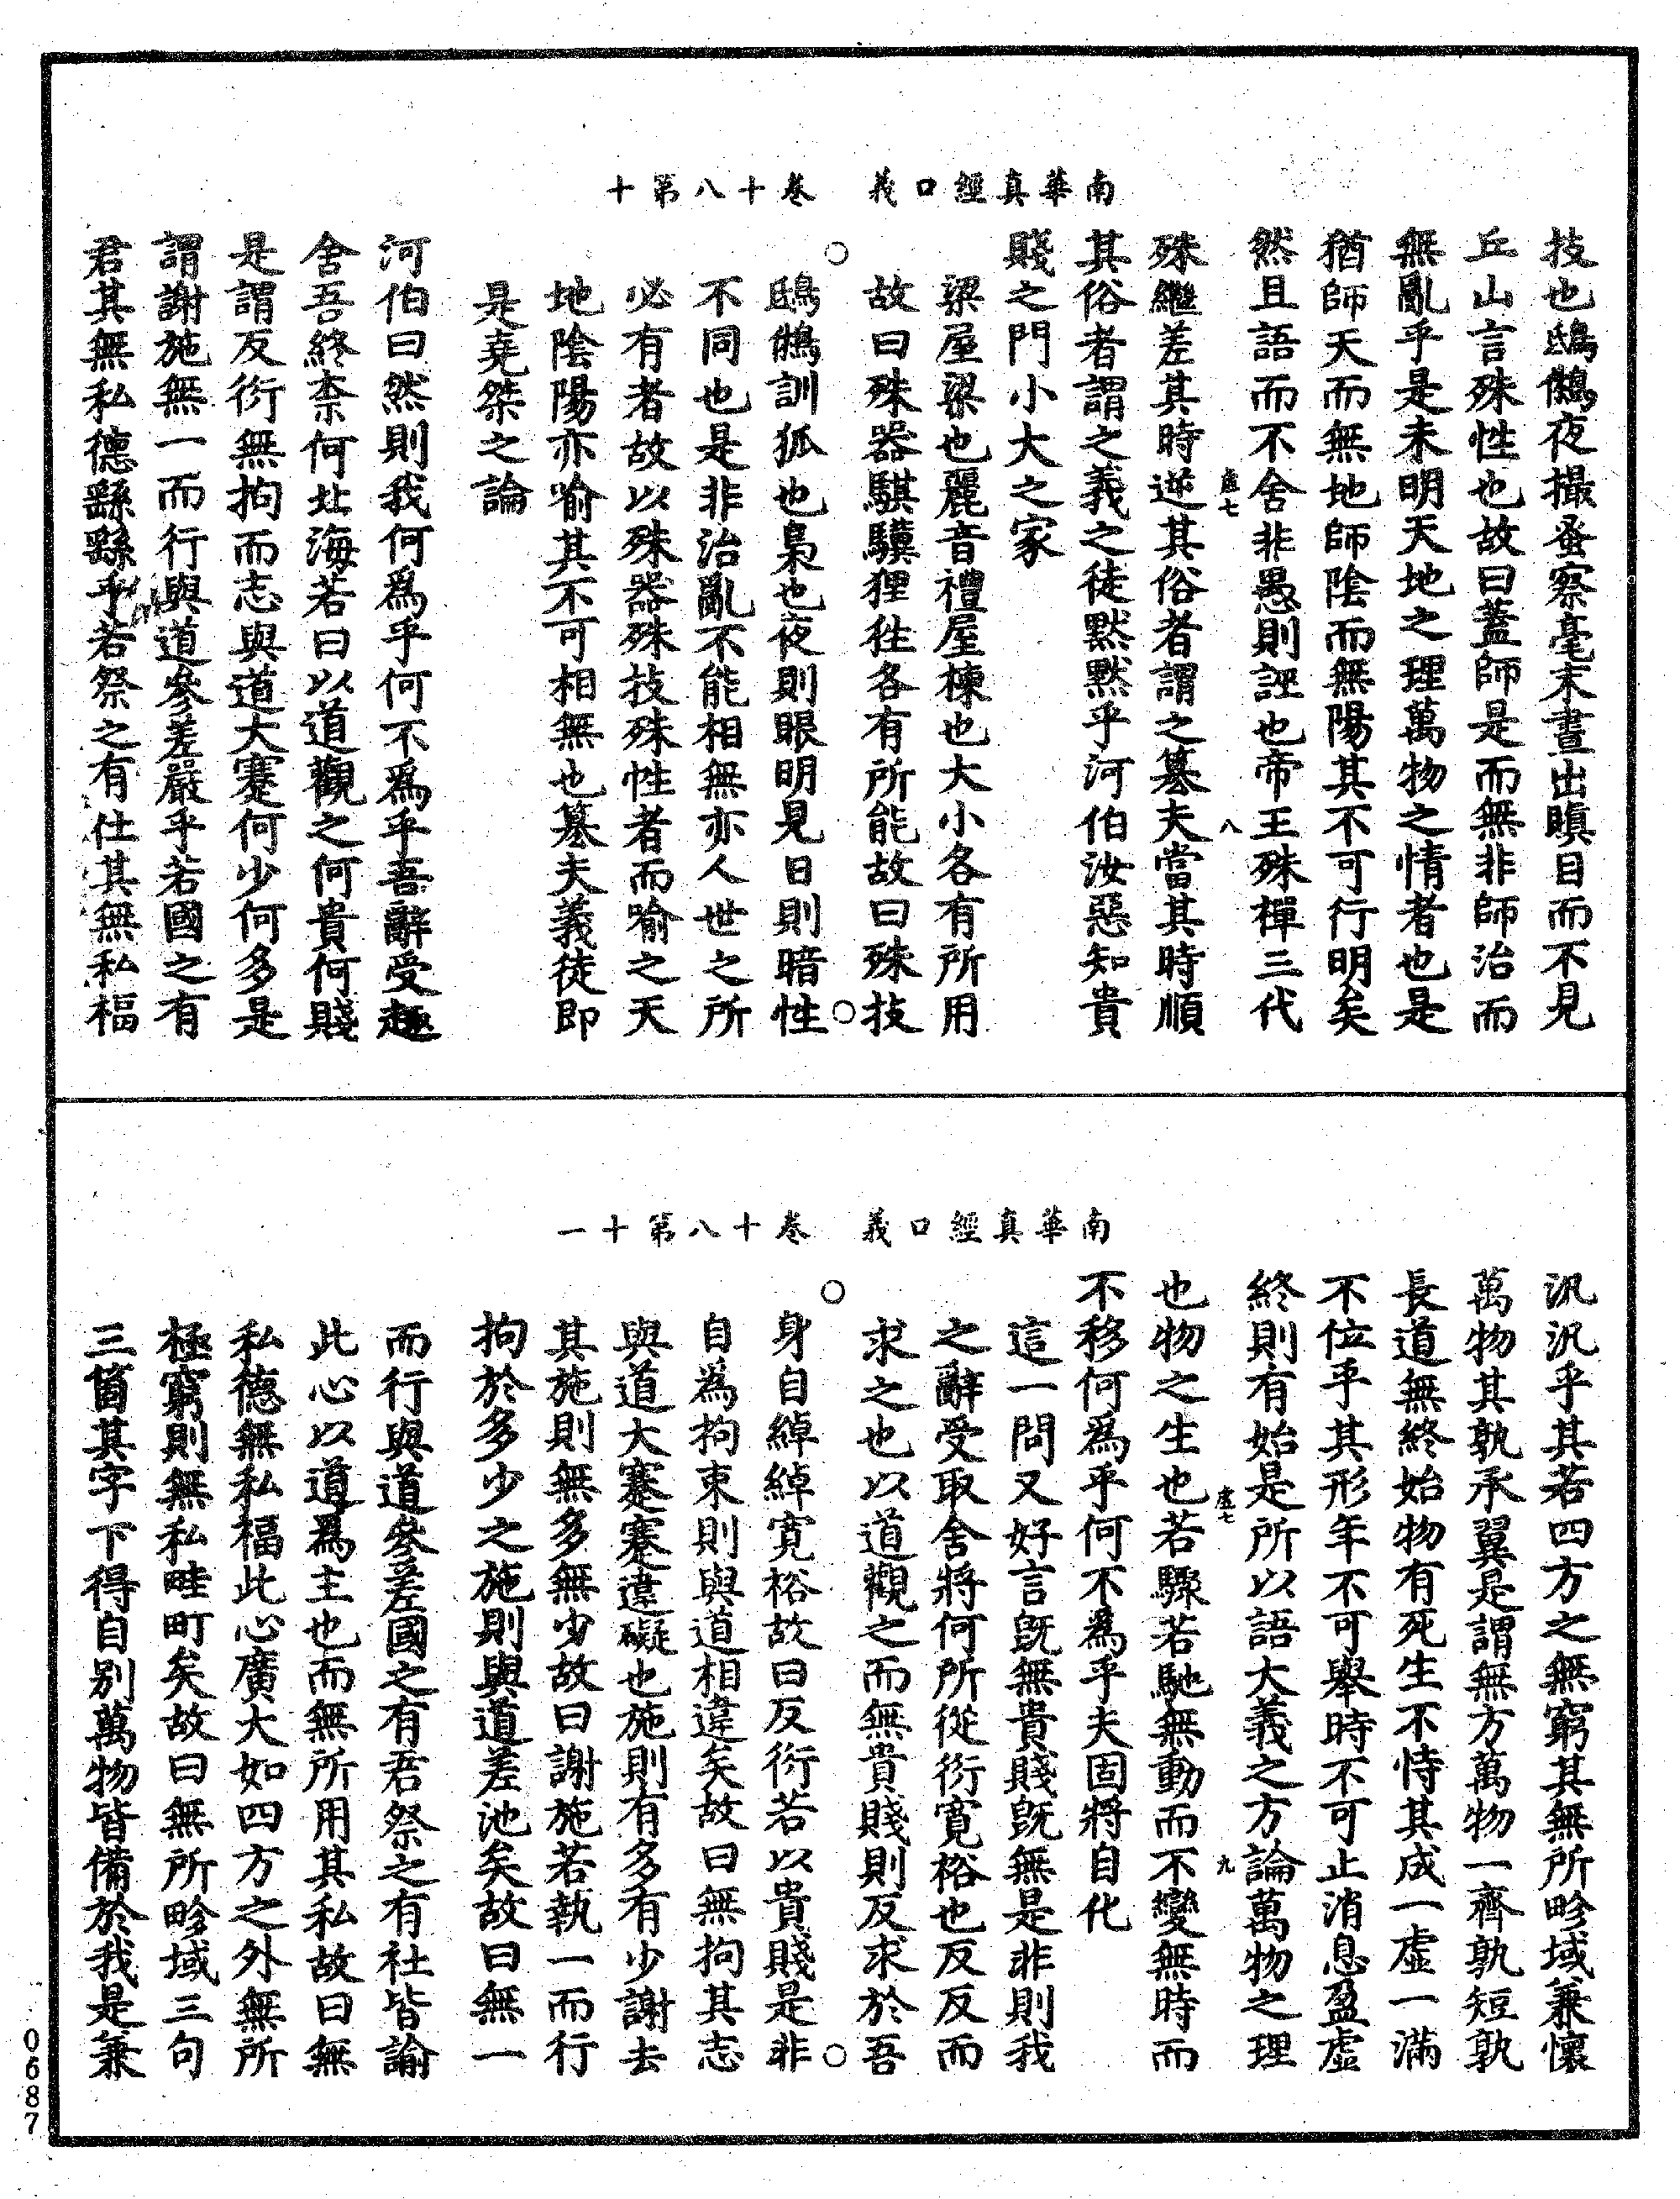 南華真經口義　卷十八第十
技也鴟鵂夜撮蚤察毫末晝出瞋目而不見
丘山言殊性也故曰蓋師是而無非師治而
無亂乎是未明天地之理萬物之情者也是
猶師天而無地師陰而無陽其不可行明矣
然且語而不舍非愚則誣也帝王殊禪三代
虛七　八
殊繼差其時逆其俗者謂之篡夫當其時順
其俗者謂之義之徒默默乎河伯汝惡知貴
賤之門小大之家
梁屋梁也麗音禮屋棟也大小各有所用
故曰殊器騏驥狸狌各有所能故曰殊技
鴟鵂訓狐也梟也夜則眼明見日則暗性
不同也是非治亂不能相無亦人世之所
必有者故以殊器殊技殊性者而喻之天
地陰陽亦喻其不可相無也篡夫義徒即
是堯桀之論
河伯曰然則我何爲乎何不爲乎吾辭受趣
舍吾終柰何北海若曰以道觀之何貴何賤
是謂反衍無拘而志與道大蹇何少何多是
謂謝施無一而行與道參差嚴乎若國之有
君其無私德繇繇乎若祭之有社其無私福
南華真經口義　卷十八第十一
汎汎乎其若四方之無窮其無所畛域兼懷
萬物其孰承翼是謂無方萬物一齊孰短孰
長道無終始物有死生不恃其成一虛一滿
不位乎其形年不可舉時不可止消息盈虛
終則有始是所以語大義之方論萬物之理
虛七　九
也物之生也若驟若馳無動而不變無時而
不移何爲乎何不爲乎夫固將自化
這一問又好言既無貴賤既無是非則我
之辭受取舍將何所從衍寬裕也反反而
求之也以道觀之而無貴賤則反求於吾
身自綽綽寬裕故曰反衍若以貴賤是非
自爲拘束則與道相違矣故曰無拘其志
與道大蹇蹇違礙也施則有多有少謝去
其施則無多無少故曰謝施若執一而行
拘於多少之施則與道差池矣故曰無一
而行與道參差國之有君祭之有社皆諭
此心以道爲主也而無所用其私故曰無
私德無私福此心廣大如四方之外無所
極窮則無私畦町矣故曰無所畛域三句
三箇其字下得自別萬物皆備於我是兼
0687